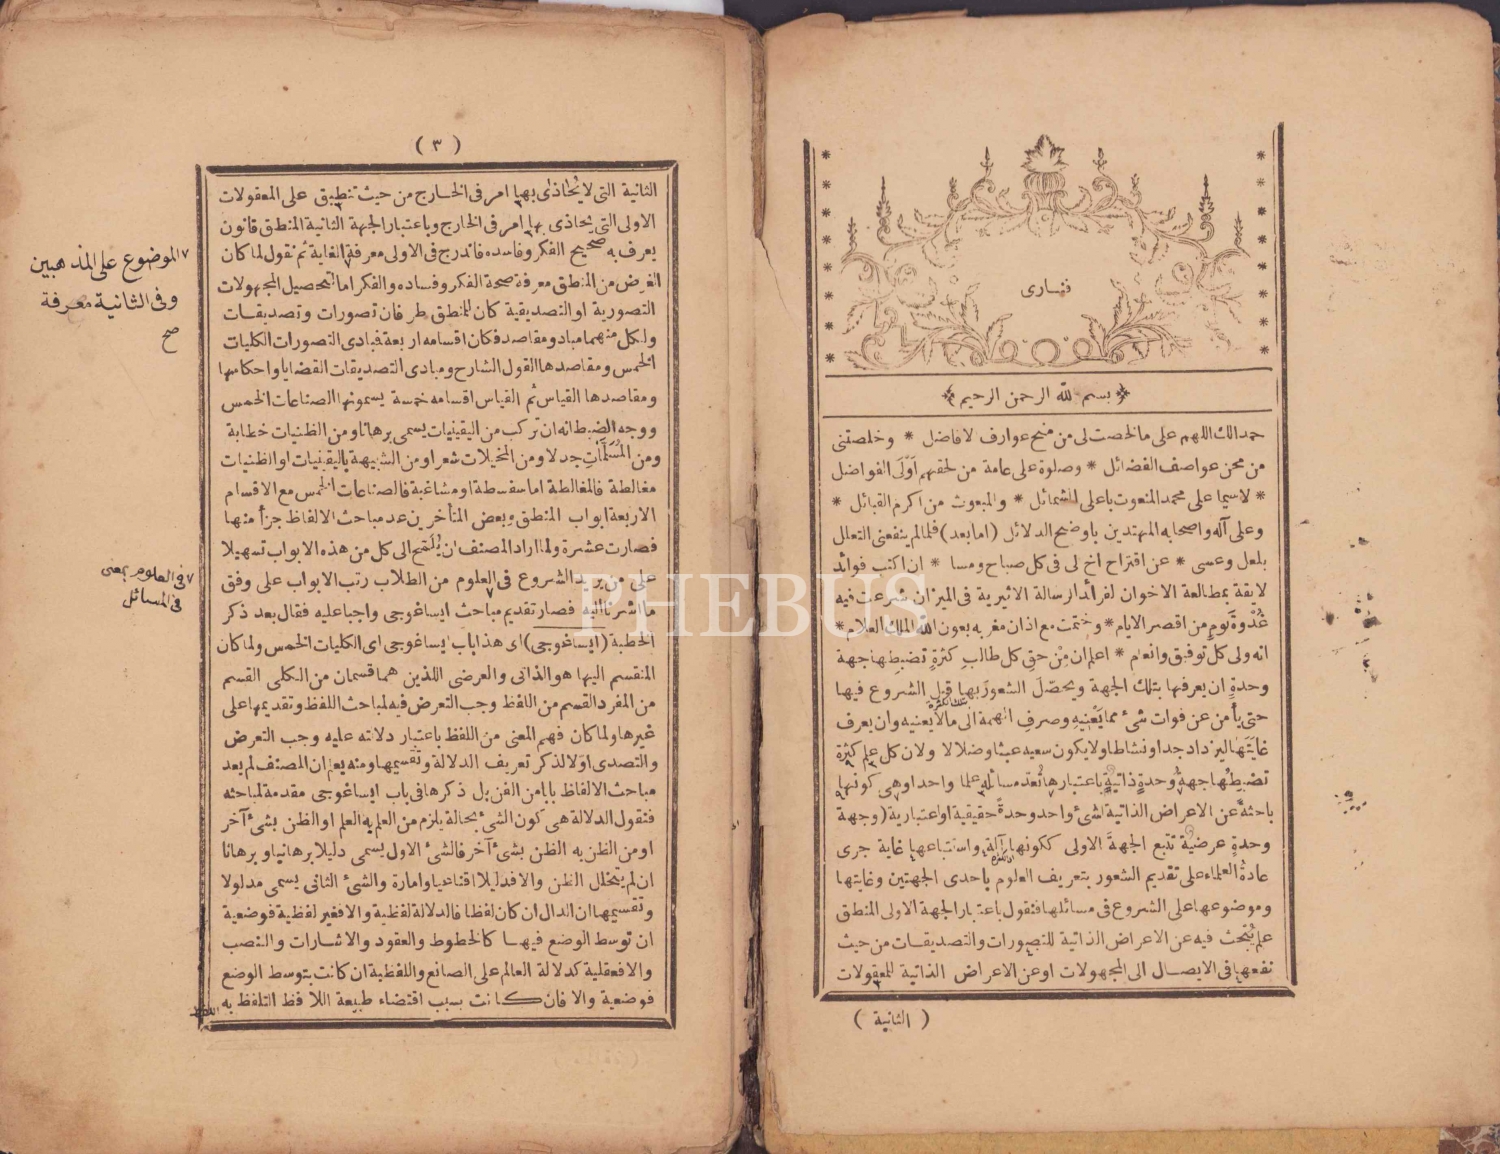 فناری
بسم الله الرحمن الرحيم
حمدا لك اللهم على ما لخصت لى من منح عوارف الافاضل * وخلصتنى
من محن عواصف الفضائل * وصلوة على عامة من لحقهم اولى الفواضل
* لاسيما على محمد المنعوت باعلى الشمائل * والمبعوث من اكرم القبائل *
وعلى آله واصحابه المهتدين باوضح الدلائل (اما بعد) فلما لم ينفعنى التعلل
بلعل وعسى * عن اقتراح اخ لى فى كل صباح ومسا * ان اكتب فوائد
لايقة بمطالعة الاخوان لفرائد رسالة الاثيرية فى الميزان شرعت فيه
غدوة يوم من اقصر الايام * وختمت مع اذان مغربه بعون الله الملك العلام *
انه ولى كل توفيق وانعام * اعلم ان من حق كل طالب كثرة تضبطها جهة
وحدة ان يعرفها بتلك الجهة ويحصل الشعور بها قبل الشروع فيها
حتى يأمن عن فوات شئ مما يعنيه وصرف الهمة الى ما لا يعنيه وان يعرف
غايتها ليزداد جدا ونشاطا ولا يكون سعيه عبثا وضلالا ولان كل علم كثرة
تضبطها جهة وحدة ذاتية باعتبارها تعد مسائله علما واحدا وهى كونها
باحثة عن الاعراض الذاتية لشئ واحد وحدة حقيقية او اعتبارية (وجهة
وحدة عرضية تتبع الجهة الاولى ككونها آلة واستتباعها غاية جرى
عادة العلماء على تقديم الشعور بتعريف العلوم باحدى الجهتين وغايتها
وموضوعها على الشروع فى مسائلها فنقول باعتبار الجهة الاولى المنطق
علم يبحث فيه عن الاعراض الذاتية للتصورات والتصديقات من حيث
نفعها فى الايصال الى المجهولات او عن الاعراض الذاتية للمعقولات
( الثانية )
( ٣ )
الثانية التى لا يحاذى بها امر فى الخارج من حيث تنطبق على المعقولات
الاولى التى يحاذى بها امر فى الخارج وباعتبار الجهة الثانية المنطق قانون
يعرف به صحيح الفكر وفاسده فاندرج فى الاولى معرفة الغاية ثم نقول لما كان
الغرض من المنطق معرفة صحة الفكر وفساده والفكر اما لتحصيل المجهولات
التصورية او التصديقية كان للمنطق طرفان تصورات وتصديقات
ولكل منهما مباد ومقاصد فكان اقسامه اربعة فبادى التصورات الكليات
الخمس ومقاصدها القول الشارح ومبادى التصديقات القضايا واحكامها
ومقاصدها القياس ثم القياس اقسامه خمسة يسمونها الصناعات الخمس
ووجه الضبط انه ان تركب من اليقينيات يسمى برهانا ومن الظنيات خطابة
ومن المسلمات جدلا ومن المخيلات شعرا ومن الشبيهة باليقينيات او الظنيات
مغالطة فالمغالطة اما سفسطة او مشاغبة فالصناعات الخمس مع الاقسام
الاربعة ابواب المنطق وبعض المتأخرين عد مباحث الالفاظ جزأ منها
فصارت عشرة ولما اراد المصنف ان يلمح الى كل من هذه الابواب تسهيلا
على من يريد الشروع فى العلوم من الطلاب رتب الابواب على وفق
ما اشرنا اليه فصار تقديم مباحث ايساغوجى واجبا عليه فقال بعد ذكر
الخطبة (ايساغوجى) اى هذا باب ايساغوجى اى الكليات الخمس ولما كان
المنقسم اليها هو الذاتى والعرضى اللذين هما قسمان من الكلى القسم
من المفرد القسم من اللفظ وجب التعرض فيه لمباحث اللفظ وتقديمها على
غيرها ولما كان فهم المعنى من اللفظ باعتبار دلالته عليه وجب التعرض
والتصدى اولا لذكر تعريف الدلالة وتقسيمها ومنه يعلم ان المصنف لم يعد
مباحث الالفاظ بابا من الفن بل ذكرها فى باب ايساغوجى مقدمة لمباحثه
فنقول الدلالة هى كون الشئ بحالة يلزم من العلم به العلم او الظن بشئ آخر
او من الظن به الظن بشئ آخر فالشئ الاول يسمى دليلا برهانيا وبرهانا
ان لم يتخلل الظن والا فدليلا اقناعيا وامارة والشئ الثانى يسمى مدلولا
وتقسيمها ان الدال ان كان لفظا فالدلالة لفظية والا فغير لفظية فوضعية
ان توسط الوضع فيها كالخطوط والعقود والاشارات والنصب
والا فعقلية كدلالة العالم على الصانع واللفظية ان كانت بتوسط الوضع
فوضعية والا فان كانت بسبب اقتضاء طبيعة اللافظ التلفظ به
٧ الموضوع على المذهبين
وفى الثانية معرفة
صح
٧ فى العلوم بمعنى
فى المسائل
PHEBUS